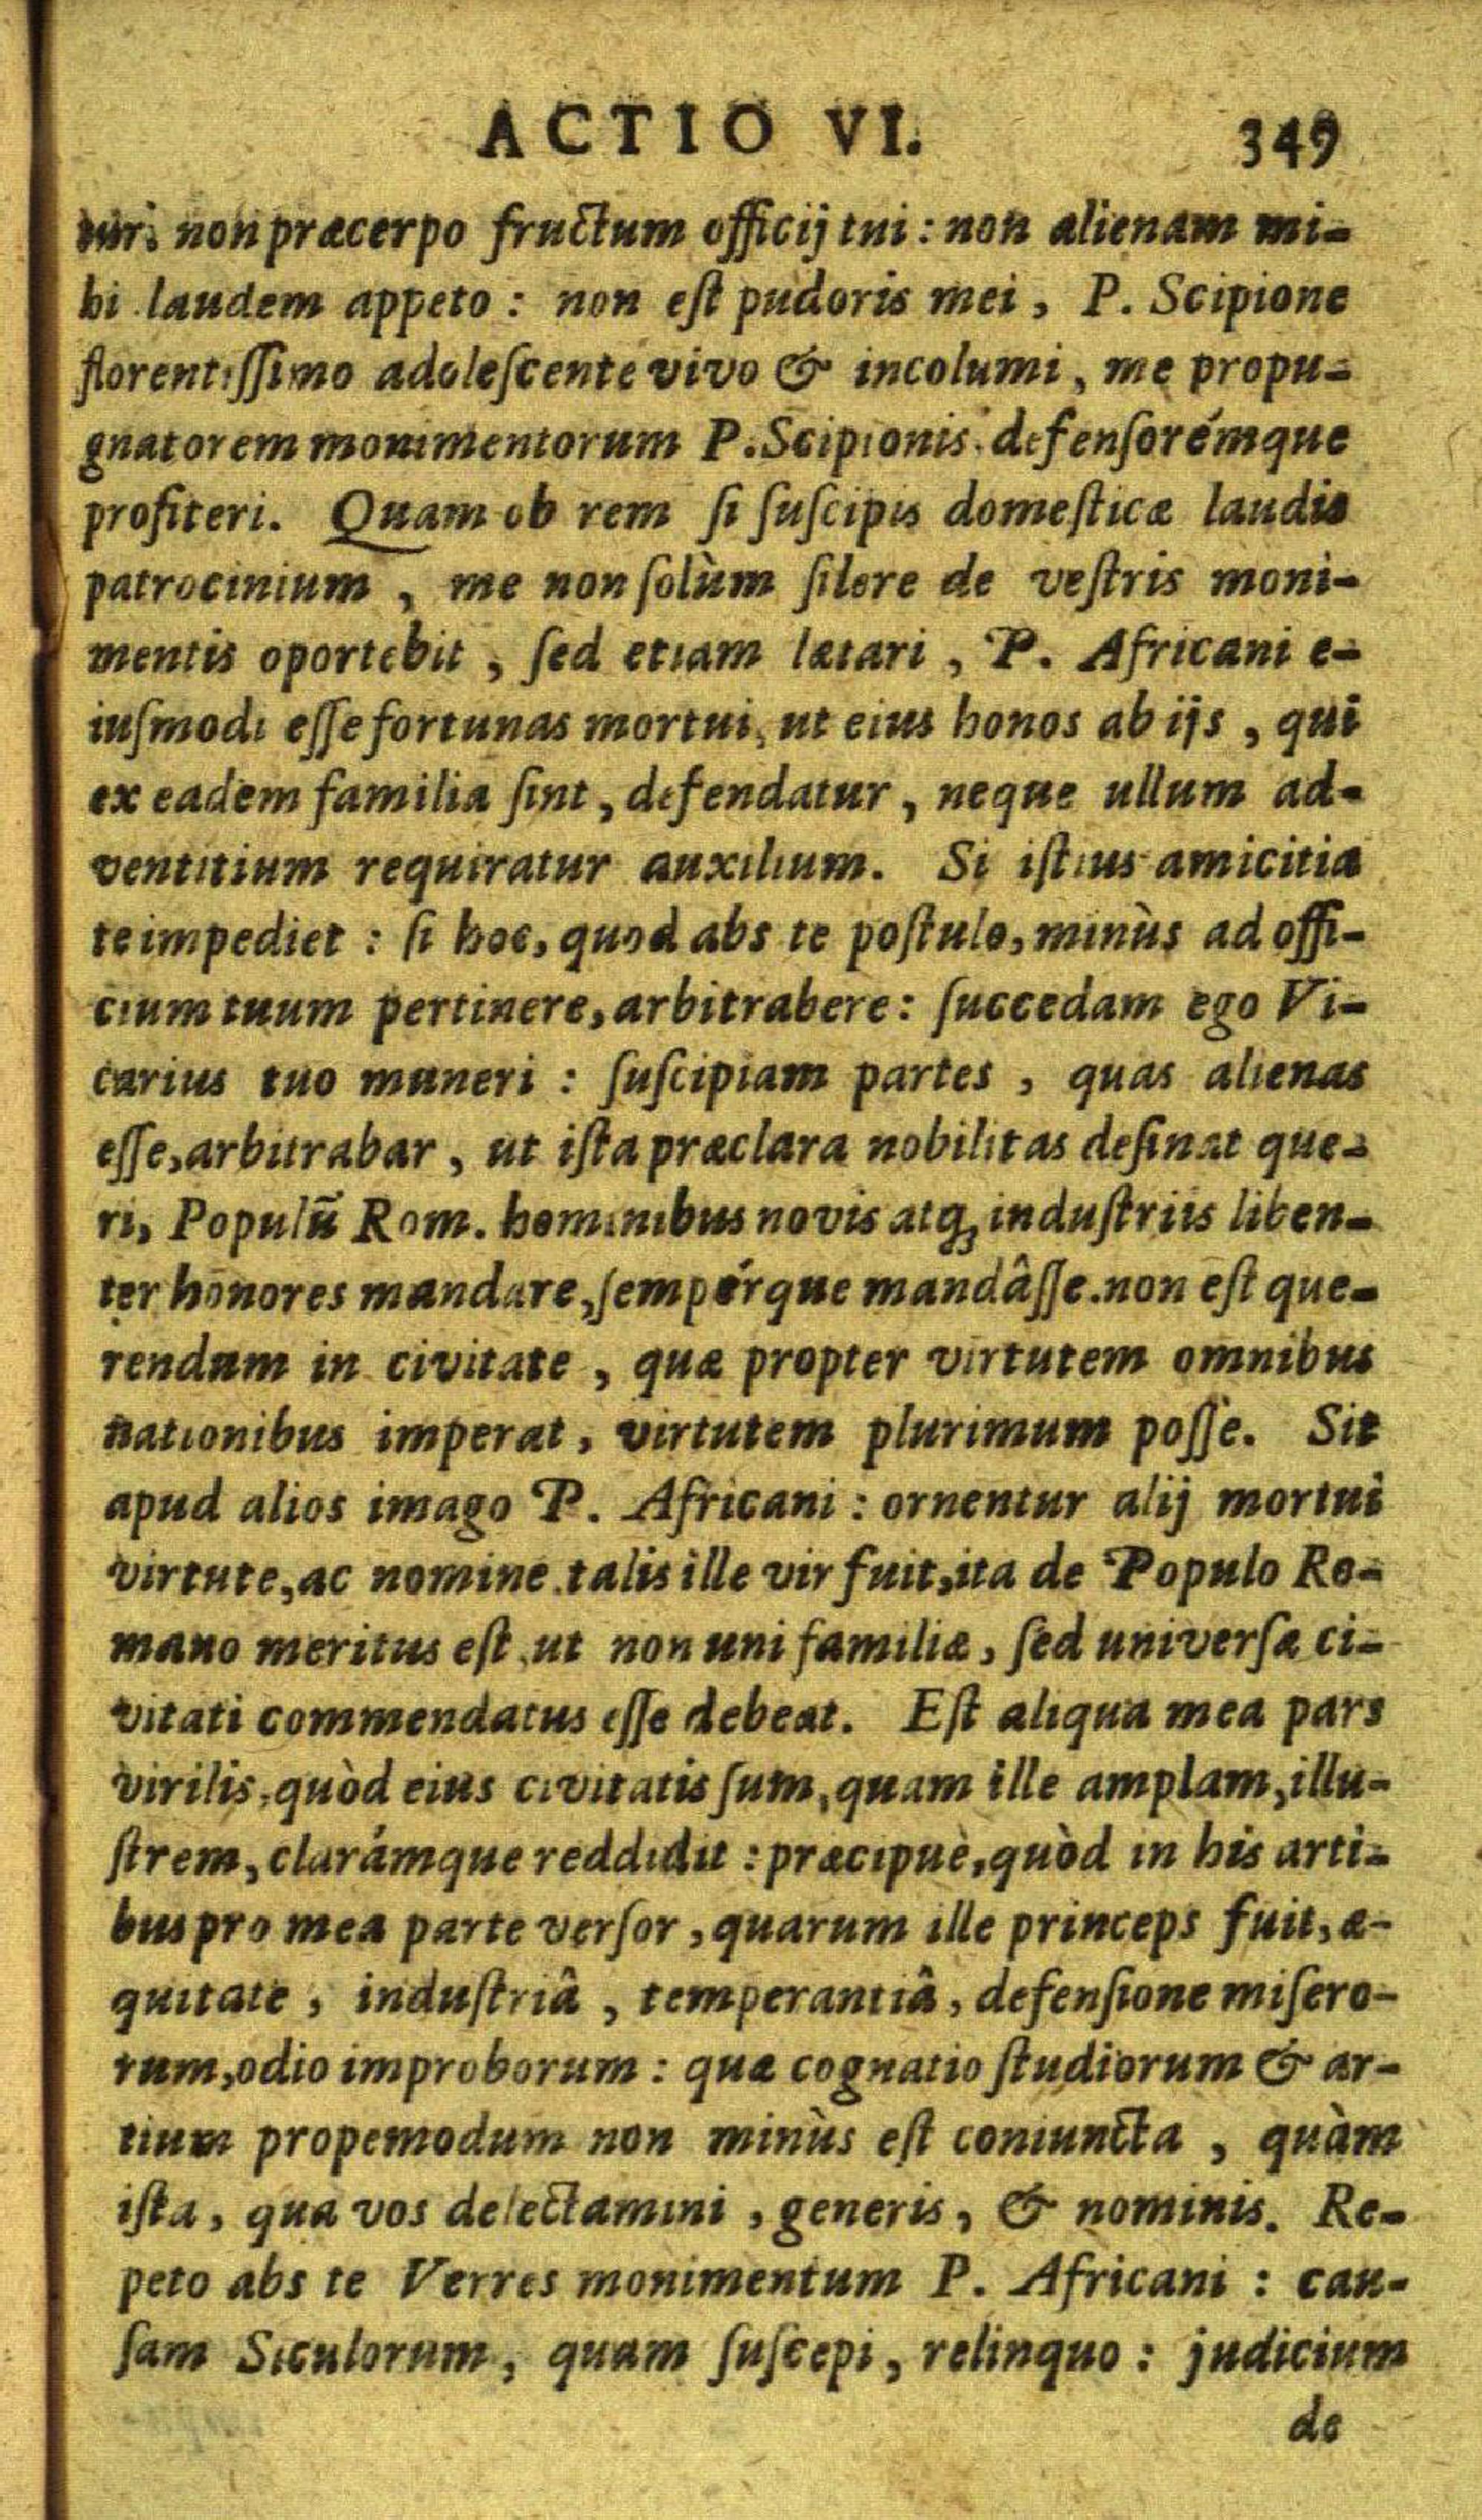 ACTIO VI. 349
turi non præcerpo fructum officij tui : non alienam mi-
hi laudem appeto : non eſt pudoris mei , P. Scipione
florentiſſimo adoleſcente vivo & incolumi , me propu-
gnatorem monimentorum P. Scipionis defenſorémque
profiteri. Quam ob rem ſi ſuſcipis domeſticæ laudis
patrocinium , me non ſolùm ſilere de veſtris moni-
mentis oportebit , ſed etiam lætari , P. Africani e-
iuſmodi eſſe fortunas mortui, ut eius honos ab ijs , qui
ex eadem familia ſint , defendatur , neque ullum ad-
ventitium requiratur auxilium. Si iſtius amicitia
te impediet : ſi hoc, quod abs te poſtulo, minùs ad offi-
cium tuum pertinere, arbitrabere : ſuccedam ego Vi-
carius tuo muneri : ſuſcipiam partes , quas alienas
eſſe, arbitrabar , ut iſta præclara nobilitas deſinat que-
ri, Populũ Rom. hominibus novis atq; induſtriis liben-
ter honores mandare, ſempérque mandâſſe. non eſt que-
rendum in civitate , quæ propter virtutem omnibus
nationibus imperat , virtutem plurimum poſſe. Sit
apud alios imago P. Africani : ornentur alij mortui
virtute, ac nomine. talis ille vir fuit, ita de Populo Ro-
mano meritus eſt, ut non uni familiæ , ſed univerſæ ci-
vitati commendatus eſſe debeat. Eſt aliqua mea pars
virilis, quòd eius civitatis ſum, quam ille amplam, illu-
ſtrem, clarámque reddidit : præcipuè, quòd in his arti-
bus pro mea parte verſor , quarum ille princeps fuit, æ-
quitate , induſtriâ , temperantiâ , defenſione miſero-
rum, odio improborum : quæ cognatio ſtudiorum & ar-
tium propemodum non minùs eſt coniuncta , quàm
iſta , qua vos delectamini , generis , & nominis. Re-
peto abs te Verres monimentum P. Africani : cau-
ſam Siculorum , quam ſuſcepi , relinquo : judicium
de